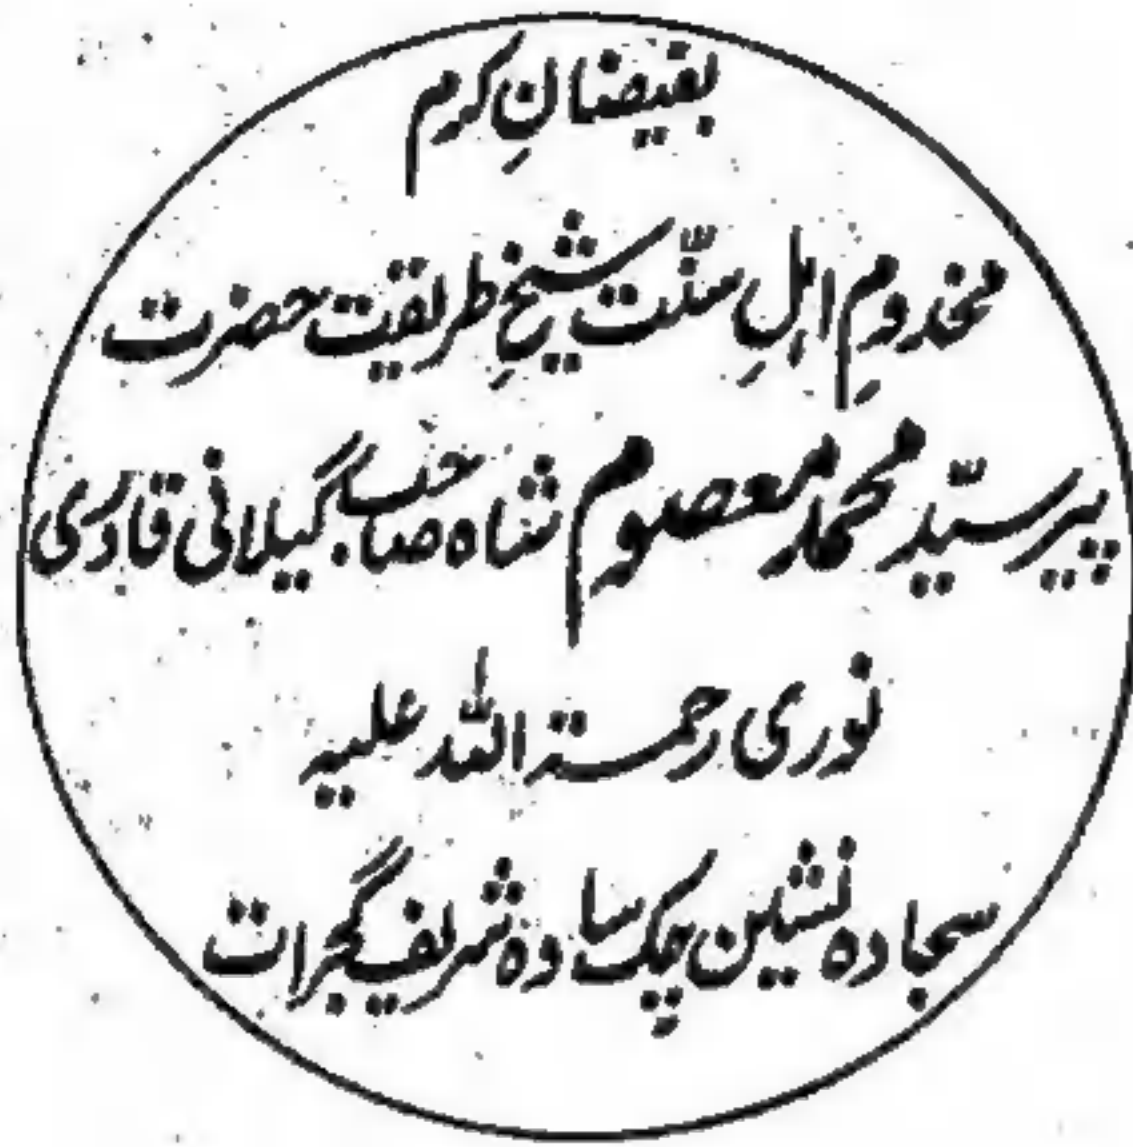 بفیضانِ کرم
مخدومِ اہلِ سنّت شیخِ طریقت حضرت
پیر سیّد محمد معصوم شاہ صاحب گیلانی قادری
نوری رحمتہ اللہ علیہ
سجادہ نشین چک سادہ شریف گجرات